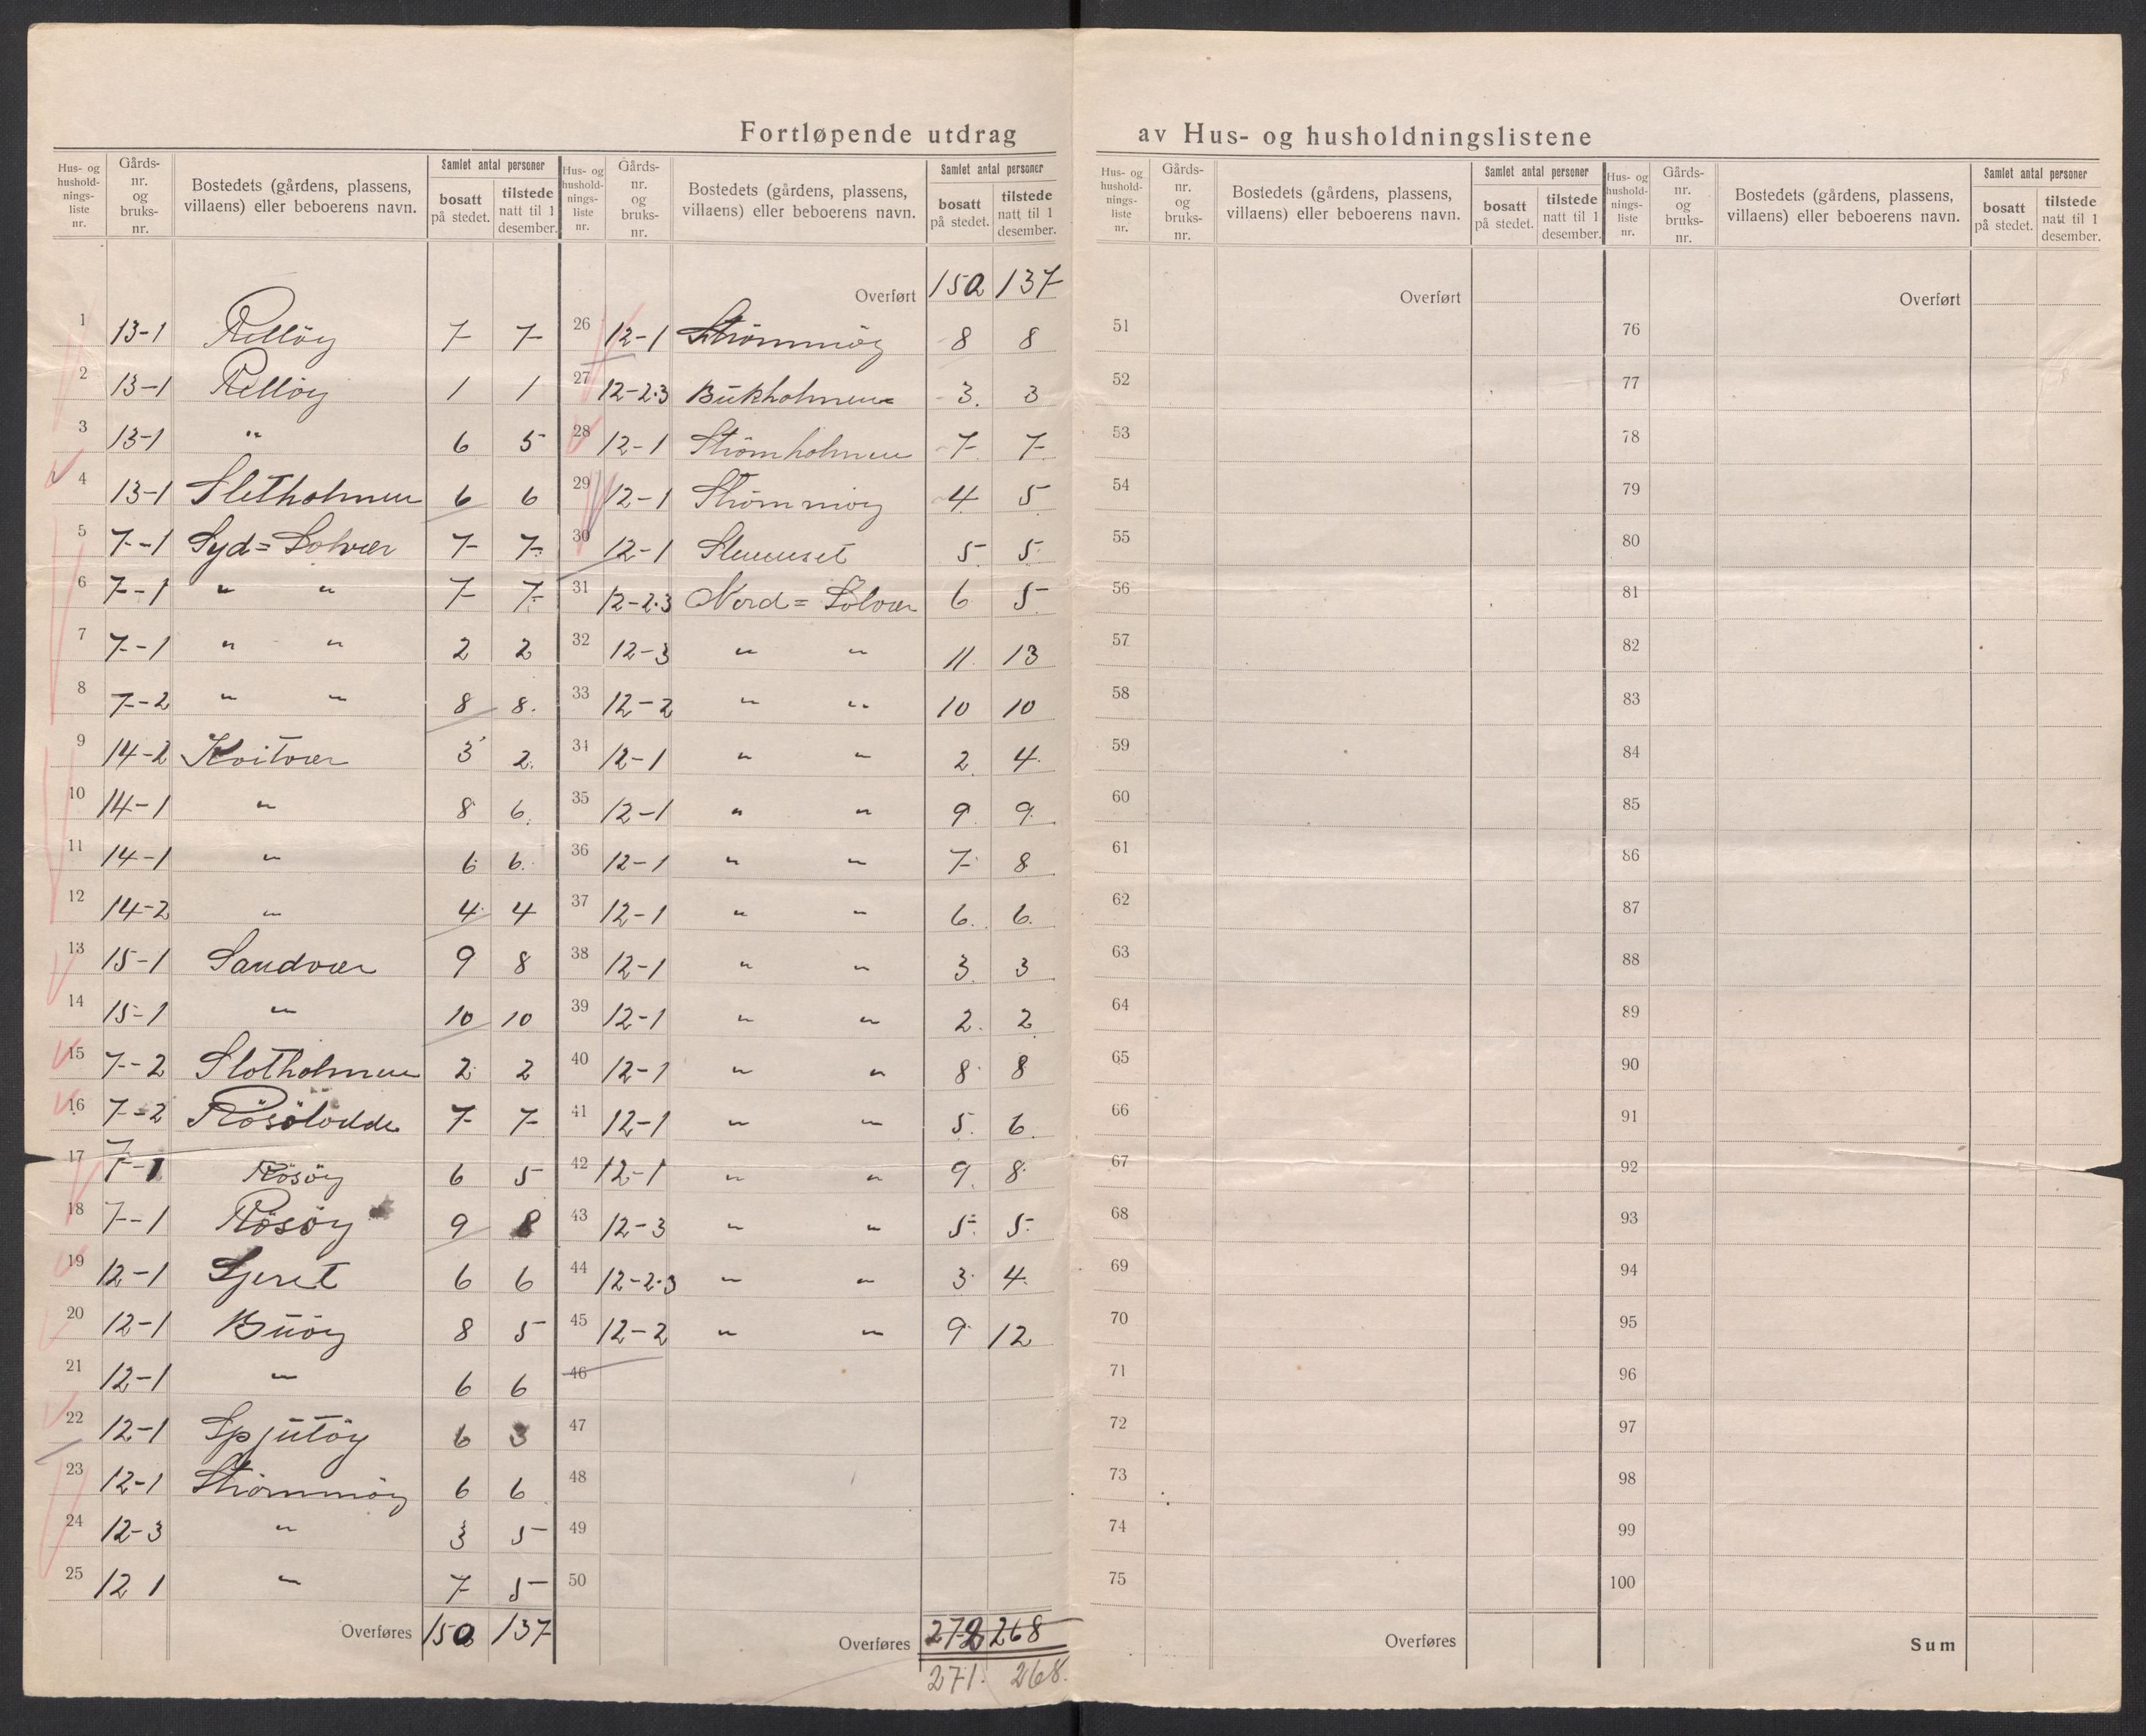 Fortløpende utdrag av Hus- og husholdningslistene
Hus- og husholdnings-liste nr. | Gårds-nr. og bruks-nr. | Bostedets (gårdens, plassens, villaens) eller beboerens navn. | Samlet antal personer | bosatt på stedet. | tilstede natt til 1 desember.
Hus- og husholdnings-liste nr. | Gårds-nr. og bruks-nr. | Bostedets (gårdens, plassens, villaens) eller beboerens navn. | Samlet antal personer | bosatt på stedet. | tilstede natt til 1 desember.
1 13-1 Rellöy 7 7
2 13-1 Rellöy 1 1
3 13-1 " 6 5
4 13-1 Sletholmen 6 6
5 7-1 Syd=Solvær 7 7
6 7-1 " " 7 7
7 7-1 " " 2 2
8 7-2 " " 8 8.
9 14-2 Kvitvær 3 2.
10 14-1 " 8 6.
11 14-1 " 6 6.
12 14-2 " 4 4
13 15-1 Sandvær 9 8
14 15-1 " 10 10
15 7-2 Slotholmen 2 2
16 7=2 Rösölodde 7 7
17 7-1 Rösöy 6 5
18 7-1 Rösöy 9 8
19 12-1 Sjeret 6 6
20 12-1 Buöy 8 5
21 12-1 " 6 6
22 12-1 Spjutöy 6 3
23 12-1 Strömmöy 6 6
24 12-3 " 3 5
25 12 1 " 7 5
Overføres 150 137
Overført 150 137
26 12-1 Strömmöy 8 8
27 12-2.3 Bukholmen 3. 3
28 12-1 Strömholmen 7 7
29 12-1 Strömmöy 4 5
30 12-1 5 5
31 12-2.3 Nord=Solvær 6 5
32 12-3 " " 11. 13
33 12-2 " " 10 10
34 12-1 " " 2. 4.
35 12-1 " " 9 9.
36 12-1 " " 7 8
37 12-1 " " 6. 6.
38 12-1 " " 3. 3
39 12-1 " " 2. 2
40 12-1 " " 8 8
41 12-1 " " 5. 6.
42 12-1 " " 9. 8
43 12-3 " " 5 5
44 12-2.3 " " 3 4.
45 12-2 " " 9 12
46
47
48
49
50
Overføres 272 268
271. 268.
Hus- og husholdnings-liste nr. | Gårds-nr. og bruks-nr. | Bostedets (gårdens, plassens, villaens) eller beboerens navn. | Samlet antal personer | bosatt på stedet. | tilstede natt til 1 desember.
Overført
51
52
53
54
55
56
57
58
59
60
61
62
63
64
65
66
67
68
69
70
71
72
73
74
75
Overføres
Hus- og husholdnings-liste nr. | Gårds-nr. og bruks-nr. | Bostedets (gårdens, plassens, villaens) eller beboerens navn. | Samlet antal personer | bosatt på stedet. | tilstede natt til 1 desember.
Overført
76
77
78
79
80
81
82
83
84
85
86
87
88
89
90
91
92
93
94
95
96
97
98
99
100
Sum